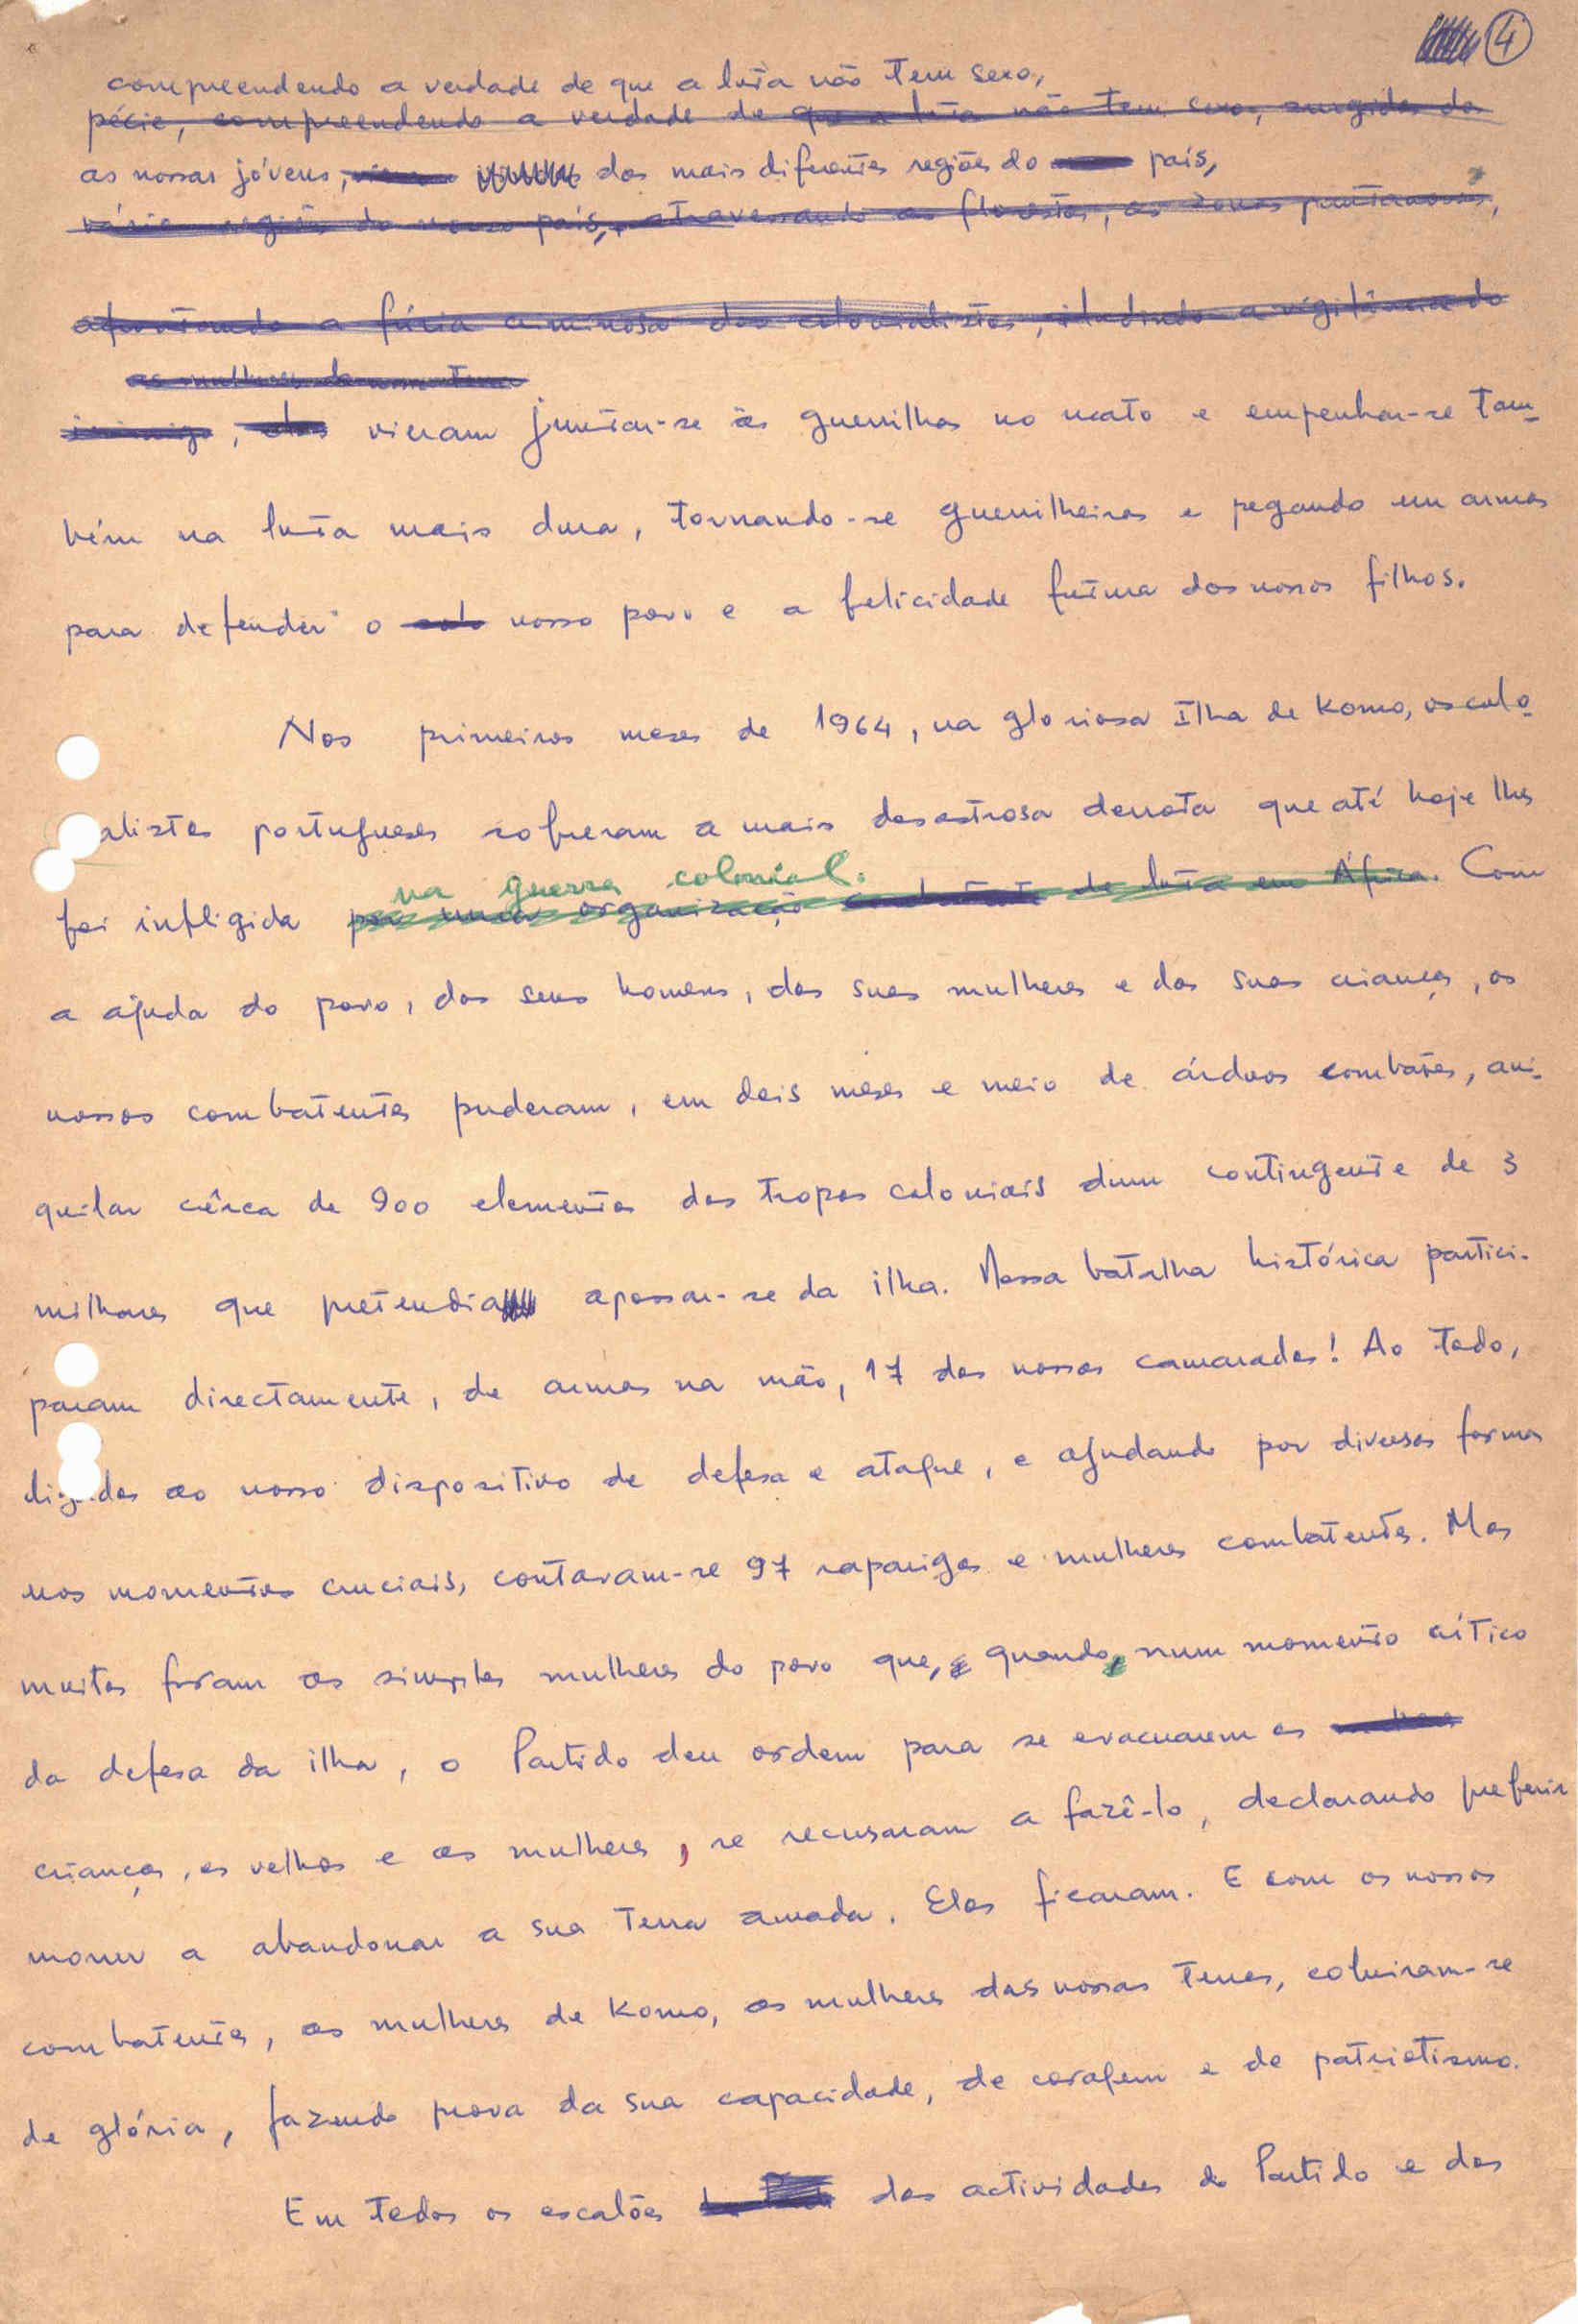 4
compreendendo a verdade de que a luta não tem sexo,
pécie, compreendendo a verdade de que a luta não tem sexo, surgidas da
as nossas jóvens, das mais diferentes regiões do país,
várias regiões do nosso país, atravessando as florestas, as zonas pantanosas,
afrontando a fúria criminosa dos colonialistas, iludindo a vigilância do
as mulheres da nossa terra
inimigo, elas vieram juntar-se às guerrilhas no mato e empenhar-se tam-
bém na luta mais dura, tornando-se guerrilheiras e pegando em armas
para defender o nosso povo e a felicidade futura dos nossos filhos.
Nos primeiros meses de 1964, na gloriosa Ilha de Komo, os colo
alistas portugueses sofreram a mais desastrosa derrota que até hoje lhes
na guerra colonial.
foi infligida por uma organização de luta em África. Com
a ajuda do povo, dos seus homens, das suas mulheres e das suas crianças, os
nossos combatentes puderam, em dois meses e meio de árduos combates, ani-
quilar cêrca de 900 elementos das tropas coloniais dum contingente de 3
milhares que pretendia apossar-se da ilha. Nessa batalha histórica partici-
param directamente, de armas na mão, 17 das nossas camaradas! Ao todo,
ligadas ao nosso dispositivo de defesa e ataque, e ajudando por diversas formas
nos momentos cruciais, contaram-se 97 raparigas e mulheres combatentes. Mas
muitas foram as simples mulheres do povo que, quando, num momento crítico
da defesa da ilha, o Partido deu ordem para se evacuarem as
crianças, os velhos e as mulheres, se recusaram a fazê-lo, declarando preferir
morrer a abandonar a sua terra amada. Elas ficaram. E com os nossos
combatentes, as mulheres de Komo, as mulheres das nossas terras, cobriram-se
de glória, fazendo prova da sua capacidade, de coragem e de patriotismo.
Em todos os escalões das actividades do Partido e das